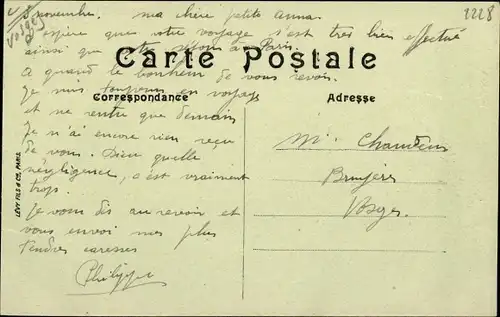 Vosges
2228
5 novembre. Ma chère petite Anna.
J'espère que votre voyage s'est très bien effectué
ainsi que votre séjour à Paris.
Carte Postale
A quand le bonheur de vous revoir.
Je suis toujours en voyage
Correspondance
Adresse
et ne rentre que demain
Je n'ai encore rien reçu
de vous. Dieu quelle
négligence, c'est vraiment
trop.
Je vous dis au revoir et
vous envoi mes plus
tendres caresses
Philippe
Bruyères
Vosges.
LÉVY FILS & Cie, PARIS